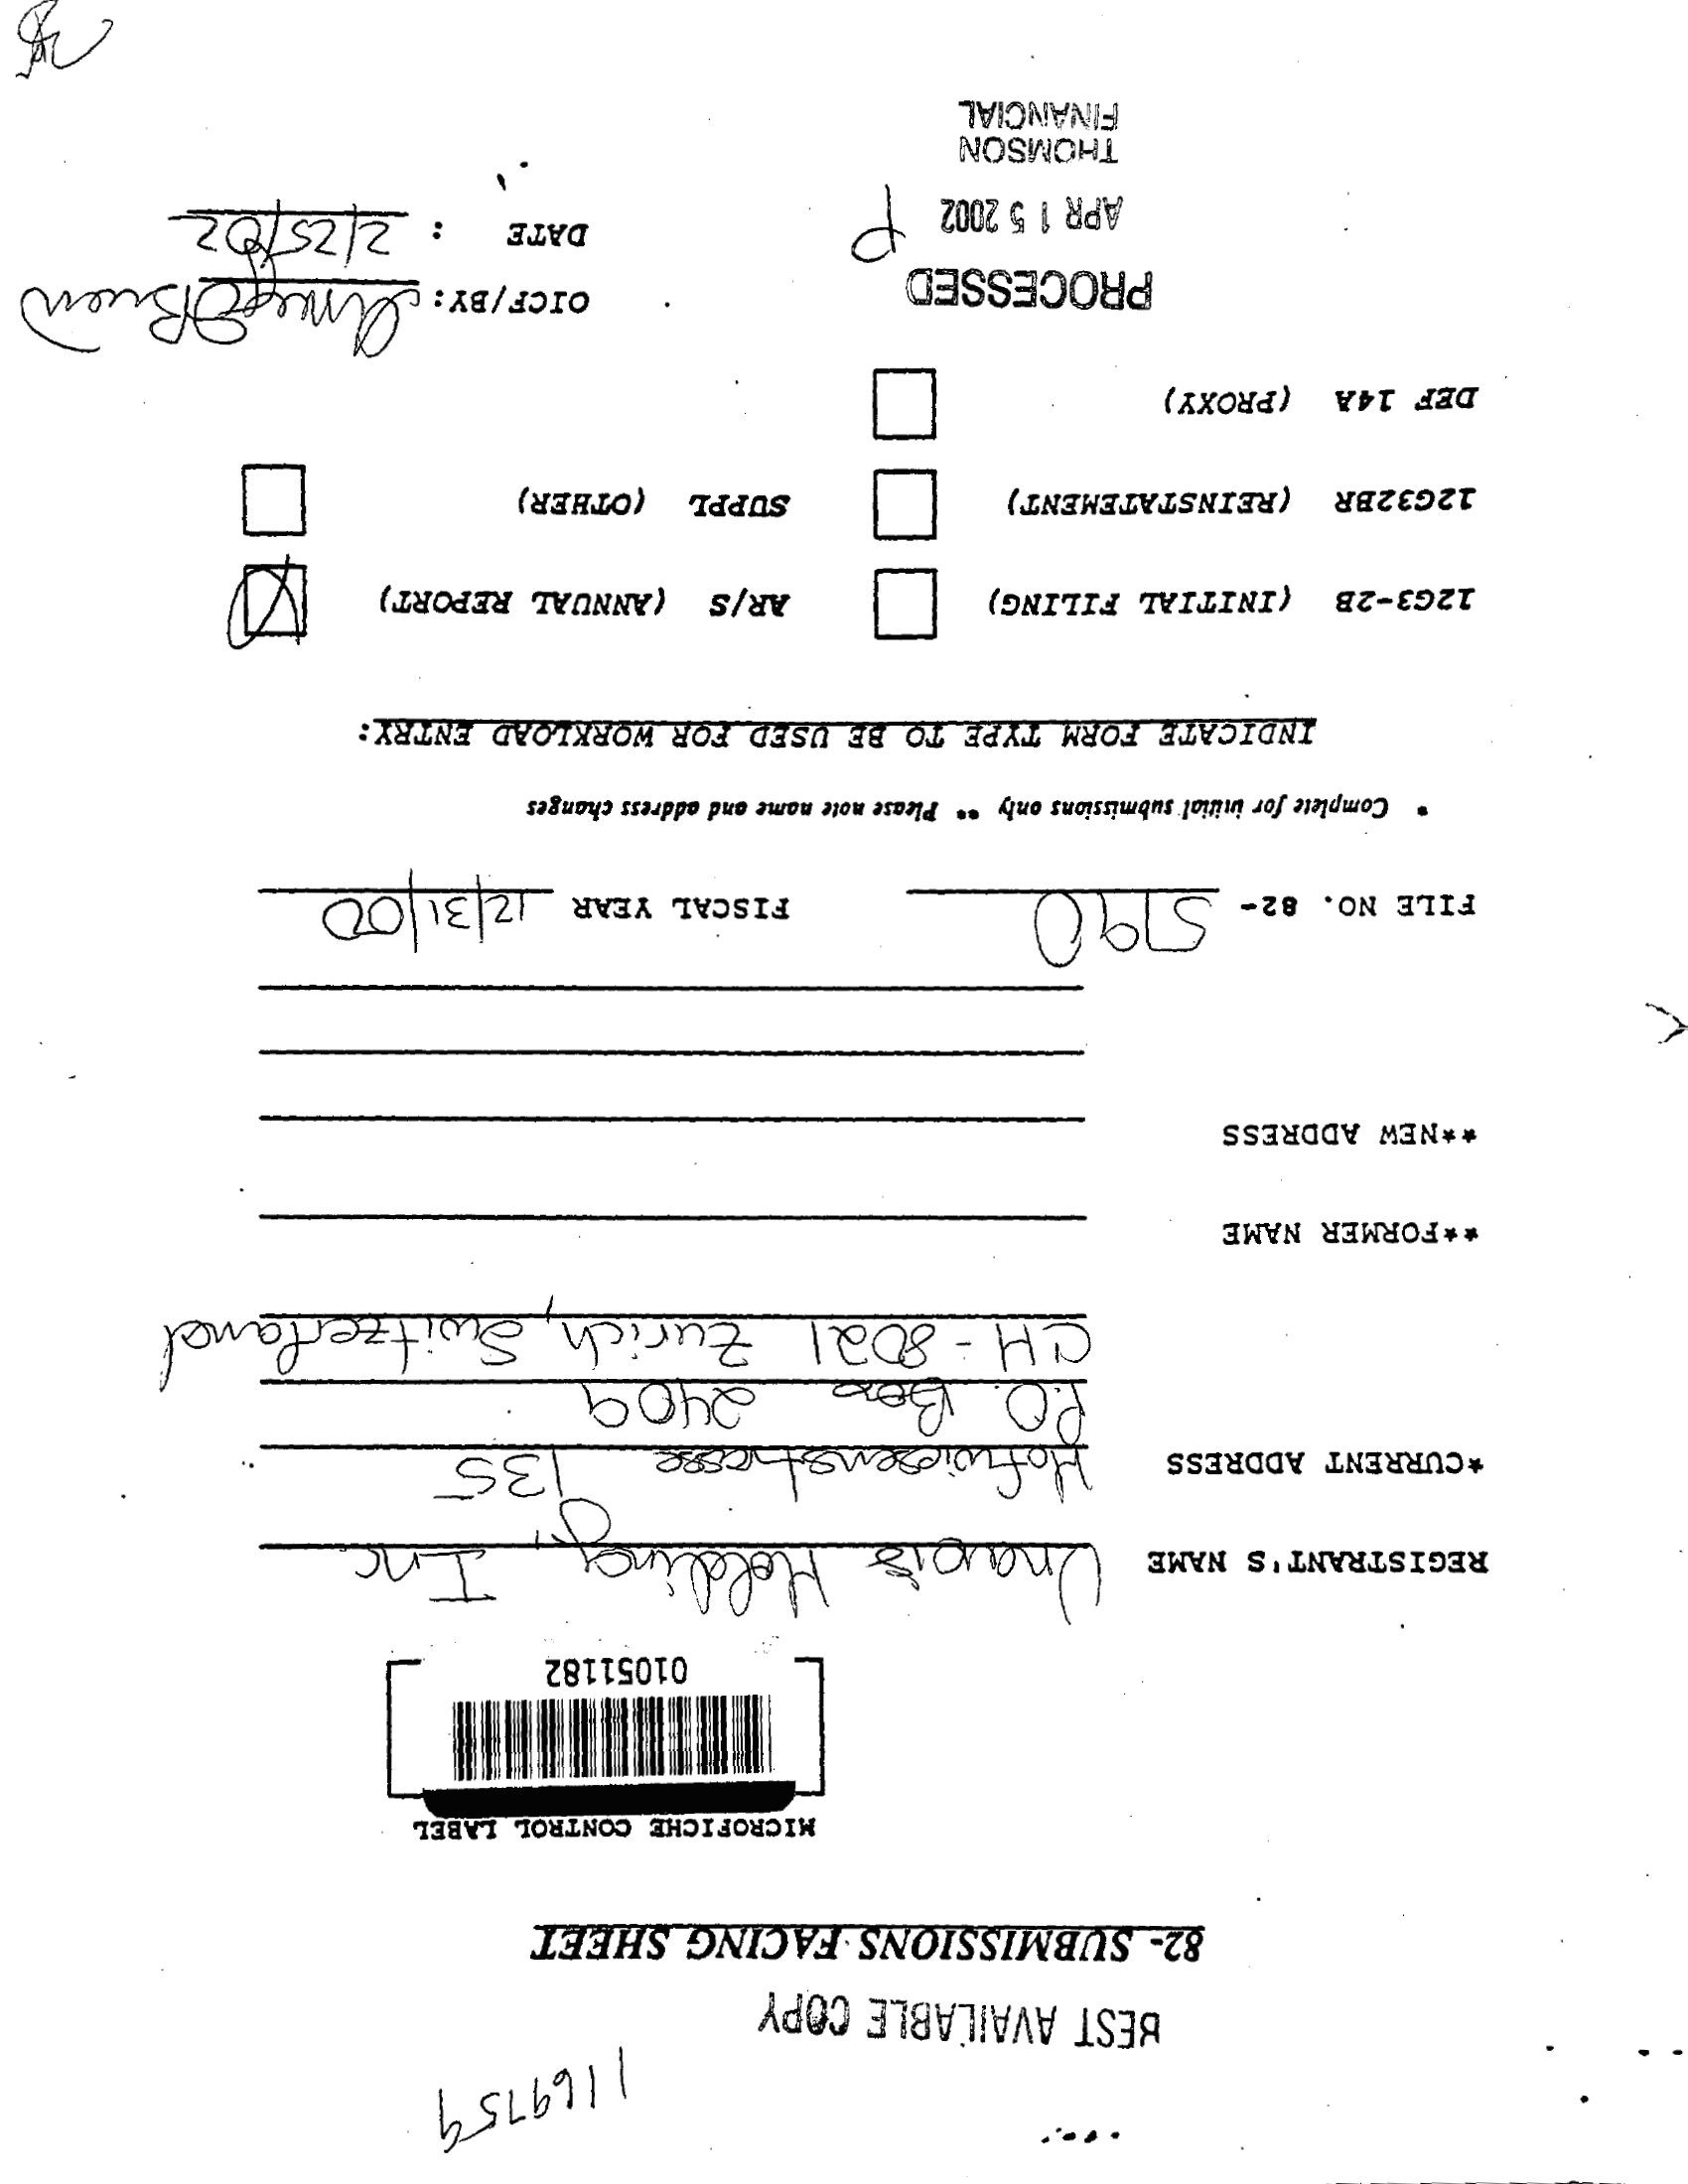 1169759
BEST AVAILABLE COPY
82- SUBMISSIONS FACING SHEET
MICROFICHE CONTROL LABEL
01051182
REGISTRANT'S NAME Holding, Inc
*CURRENT ADDRESS Hofwiesenstrasse 135
P.O. Box 2409
CH-8021 Zurich, Switzerland
**FORMER NAME
**NEW ADDRESS
FILE NO. 82- 5190 FISCAL YEAR 12/31/00
* Complete for initial submissions only ** Please note name and address changes
INDICATE FORM TYPE TO BE USED FOR WORKLOAD ENTRY:
12G3-2B (INITIAL FILING) AR/S (ANNUAL REPORT)
12G32BR (REINSTATEMENT) SUPPL (OTHER)
DEF 14A (PROXY)
OICF/BY:
DATE : 2/25/02
PROCESSED
APR 15 2002
P
THOMSON
FINANCIAL